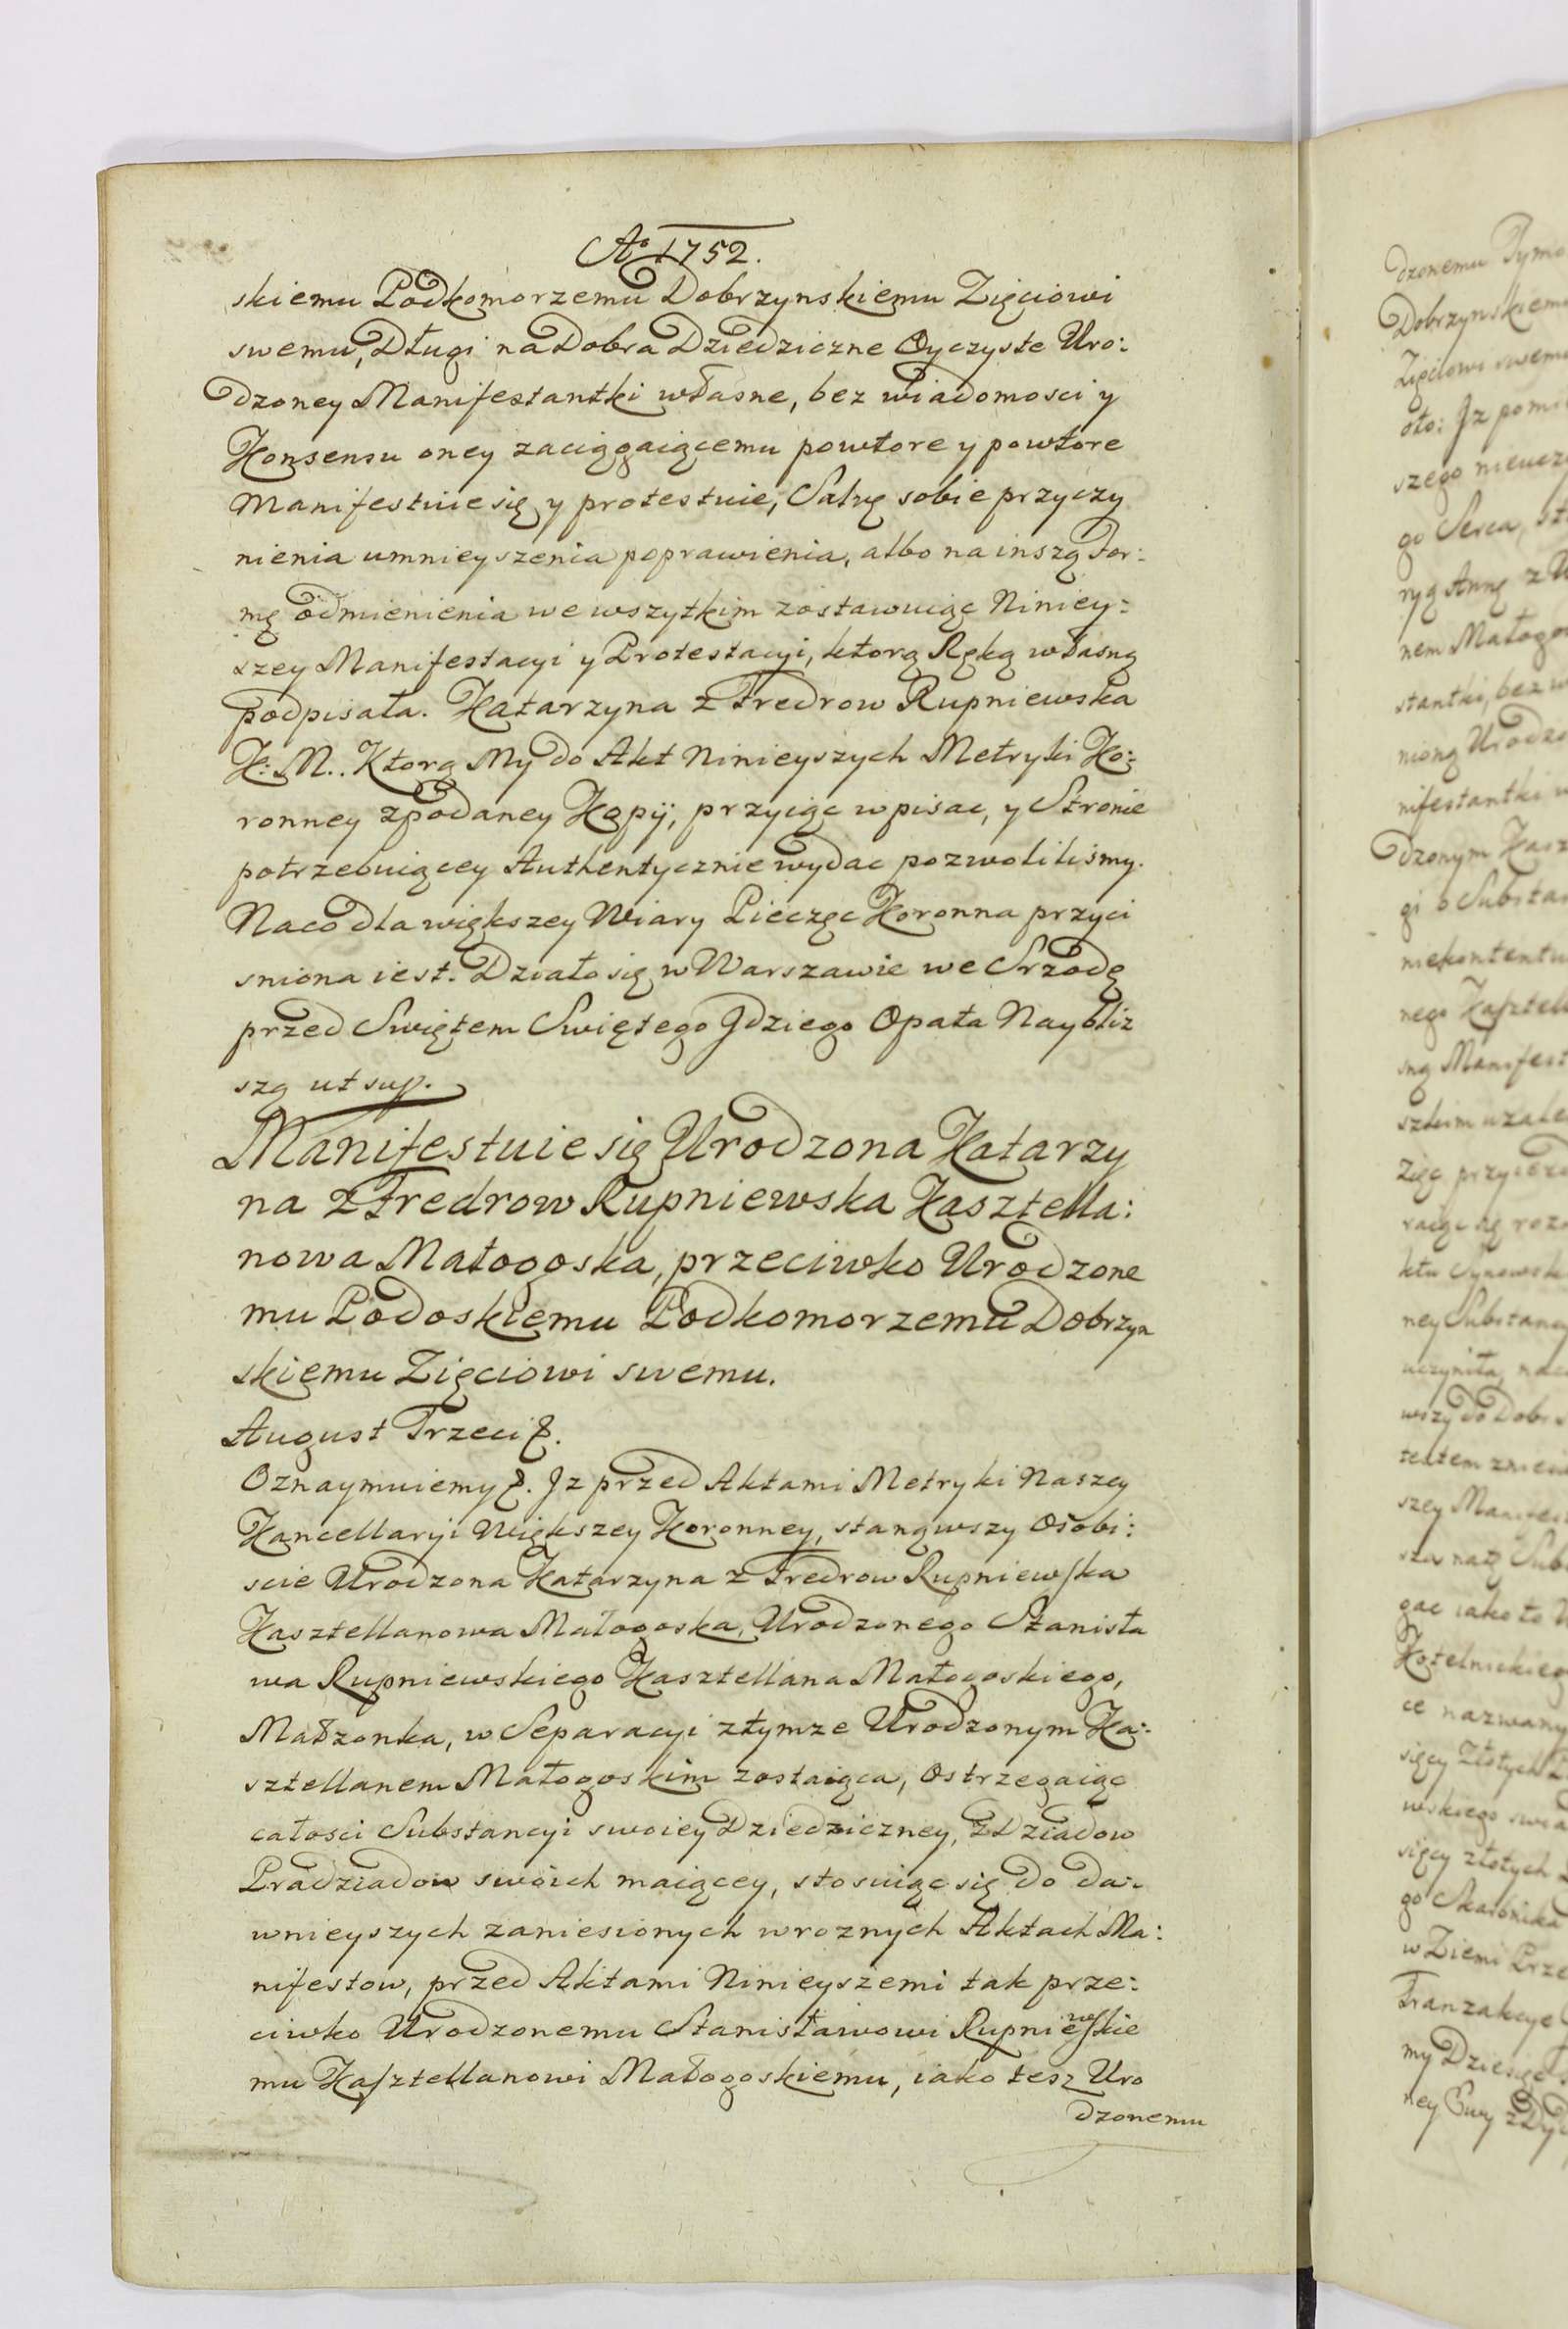 Aº 1752.
skiemu Podkomorzemu Dobrzynskiemu Zięciowi
swemu, Długi na Dobra Dziedziczne Oyczyste Uro:
dzoney Manifestantki własne, bez wiadomosci y
Konsensu oney zaciągaiącemu powtore y powtore
Manifestuie się y protestuie, Salvę sobie przyczy
nienia umnieyszenia poprawienia, albo na inszą For:
mę odmienienia we wszytkim zostawuiąc Niniey:
szey Manifestacyi y Protestacyi, ktorą Ręką własną
podpisała. Katarzyna z Fredrow Rupniewska
K: M.. Ktorą My do Akt Ninieyszych Metryki Ko:
ronney z podaney Kopij, przyiąc wpisac, y Stronie
potrzebuiącey Authentycznie wydac pozwolilismy.
Na co dla większey Wiary Pieczęc Koronna przyci
sniona iest. Działo się w Warszawie we Srzodę
przed Swiętem Swiętego Jdziego Opata Naybliz
szą ut sup.
Manifestuie się Urodzona Katarzy
na z Fredrow Rupniewska Kasztella:
nowa Małogoska, przeciwko Urodzone
mu Podoskiemu Podkomorzemu Dobrzyn
skiemu Zięciowi swemu.
August Trzeci &.
Oznaymuiemy &. Jz przed Aktami Metryki Naszey
Kancellaryi Większey Koronney, stanąwszy Osobi:
scie Urodzona Katarzyna z Fredrow Rupniewska
Kasztellanowa Małogoska, Urodzonego Stanisła
wa Rupniewskiego Kasztellana Małogoskiego,
Małzonka, w Separacyi z tymze Urodzonym Ka:
sztellanem Małogoskim zostaiąca, Ostrzegaiąc
całosci Substancyi swoiey Dziedziczney, z Dziadow
Pradziadow swoich maiącey, stosuiąc się do da:
wnieyszych zaniesionych w roznych Aktach Ma:
nifestow, przed Aktami Ninieyszemi tak prze:
ciwko Urodzonemu Stanisławowi Rupniewskie
mu Kasztellanowi Małogoskiemu, iako tesz Uro
dzonemu
dzonemu
Dobrzynskiemu
Zięciowi swemu
oto: Jz
szego
go Serca,
ryą Annę z
nem
stantki, bez
nioną
nifestantki
dzonym
gi o
nego
sną
szkim
Zięc
ney
uczyniła,
wszy do
szey
gac iako to
ce
sięcy złotych
wskiego
sięcy złotych
go Skarbnika
w Ziemi
Tranzakcye
my Dziesięc
ney Ewy